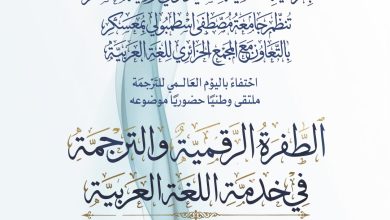 تنظم جامعة مصطفى اسطمبولي بمعسكر،
بالتعاون مع المجمع الجزائري للغة العربية
احتفاءً باليوم العالمي للترجمة
ملتقى وطنيًا حضوريًا موضوعه
الطفرة الرقمية والترجمة
في خدمة اللغة العربية